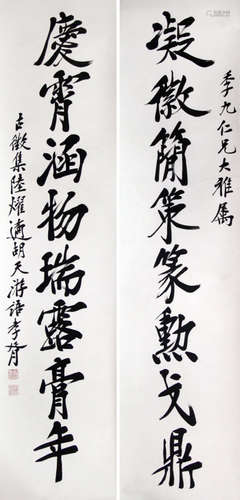 季九仁兄大雅属
凝徽簡策篆勲戈鼎
慶霄涵物瑞露膏年
集陸燿遹胡天游語李